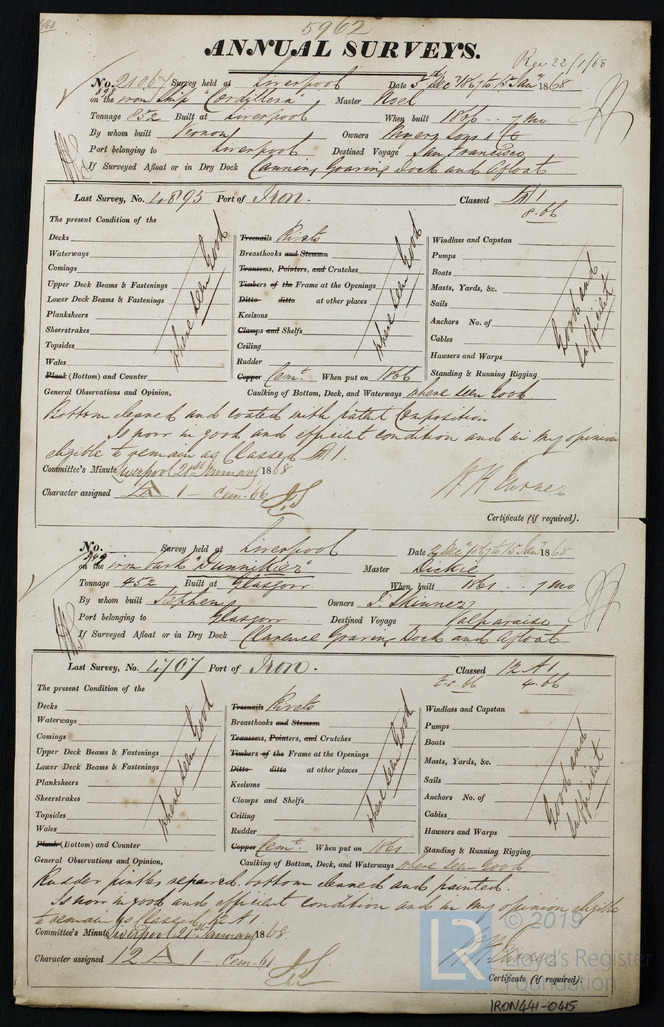 5962
ANNUAL SURVEYS.
Rec 22/1/68
No. 21067 Survey held at Liverpool Date 5th Decr 1867 to 15 Jany 1868
on the iron Ship "Cordillera" Master Noel
Tonnage 852 Built at Liverpool When built 1866 .. 7 mo
By whom built Vernon Owners & Co
Port belonging to Liverpool Destined Voyage San Francisco
If Surveyed Afloat or in Dry Dock Canning Graving Dock and Afloat
Last Survey, No. 4895 Port of Iron. Classed A 1
8.66
The present Condition of the
Decks
Waterways
Comings
Upper Deck Beams & Fastenings
Lower Deck Beams & Fastenings
Planksheers
Sheerstrakes
Topsides
Wales
Plank (Bottom) and Counter
where seen Good
Treenails Rivets
Breasthooks and Stemson
Transoms, Pointers, and Crutches
Timbers of the Frame at the Openings
Ditto ditto at other places
Keelsons
Clamps and Shelfs
Ceiling
Rudder
Copper Cemt. When put on 1866
where seen Good
Windlass and Capstan
Pumps
Boats
Masts, Yards, &c.
Sails
Anchors No. of
Cables
Hawsers and Warps
Standing & Running Rigging
Good and Sufficient
General Observations and Opinion, Caulking of Bottom, Deck, and Waterways where seen Good
Bottom cleaned and coated with patent Composition
Is now in good and efficient condition and in my opinion
eligible to remain as Classed A 1.
Committee's Minute Liverpool 21st January 1868
Character assigned A 1 - Cem. 66
Certificate (if required).
No. Survey held at Liverpool Date Decr 1867 to 15 Jany 1868
on the iron bark Master Dickie
Tonnage 452 Built at Glasgow When built 1861 .. 7 mo
By whom built Stephen Owners T. Skinner
Port belonging to Glasgow Destined Voyage Valparaiso
If Surveyed Afloat or in Dry Dock Clarence Graving Dock and Afloat
Last Survey, No. 4707 Port of Iron. Classed 12 A 1
4.66
The present Condition of the
Decks
Waterways
Comings
Upper Deck Beams & Fastenings
Lower Deck Beams & Fastenings
Planksheers
Sheerstrakes
Topsides
Wales
Plank (Bottom) and Counter
where seen Good
Treenails Rivets
Breasthooks and Stemson
Transoms, Pointers, and Crutches
Timbers of the Frame at the Openings
Ditto ditto at other places
Keelsons
Clamps and Shelfs
Ceiling
Rudder
Copper Cemt. When put on 1861
where seen Good
Windlass and Capstan
Pumps
Boats
Masts, Yards, &c.
Sails
Anchors No. of
Cables
Hawsers and Warps
Standing & Running Rigging
Good and Sufficient
General Observations and Opinion, Caulking of Bottom, Deck, and Waterways where seen Good
Rudder pintles repaired, bottom cleaned and painted.
Is now in good and efficient condition and in my opinion eligible
to remain as Classed 12 A 1.
Committee's Minute Liverpool 21st January 1868
Character assigned 12 A 1 - Cem. 61
Certificate (if required).
© 2019
LR
Lloyd's Register
Foundation
IRON441-0415